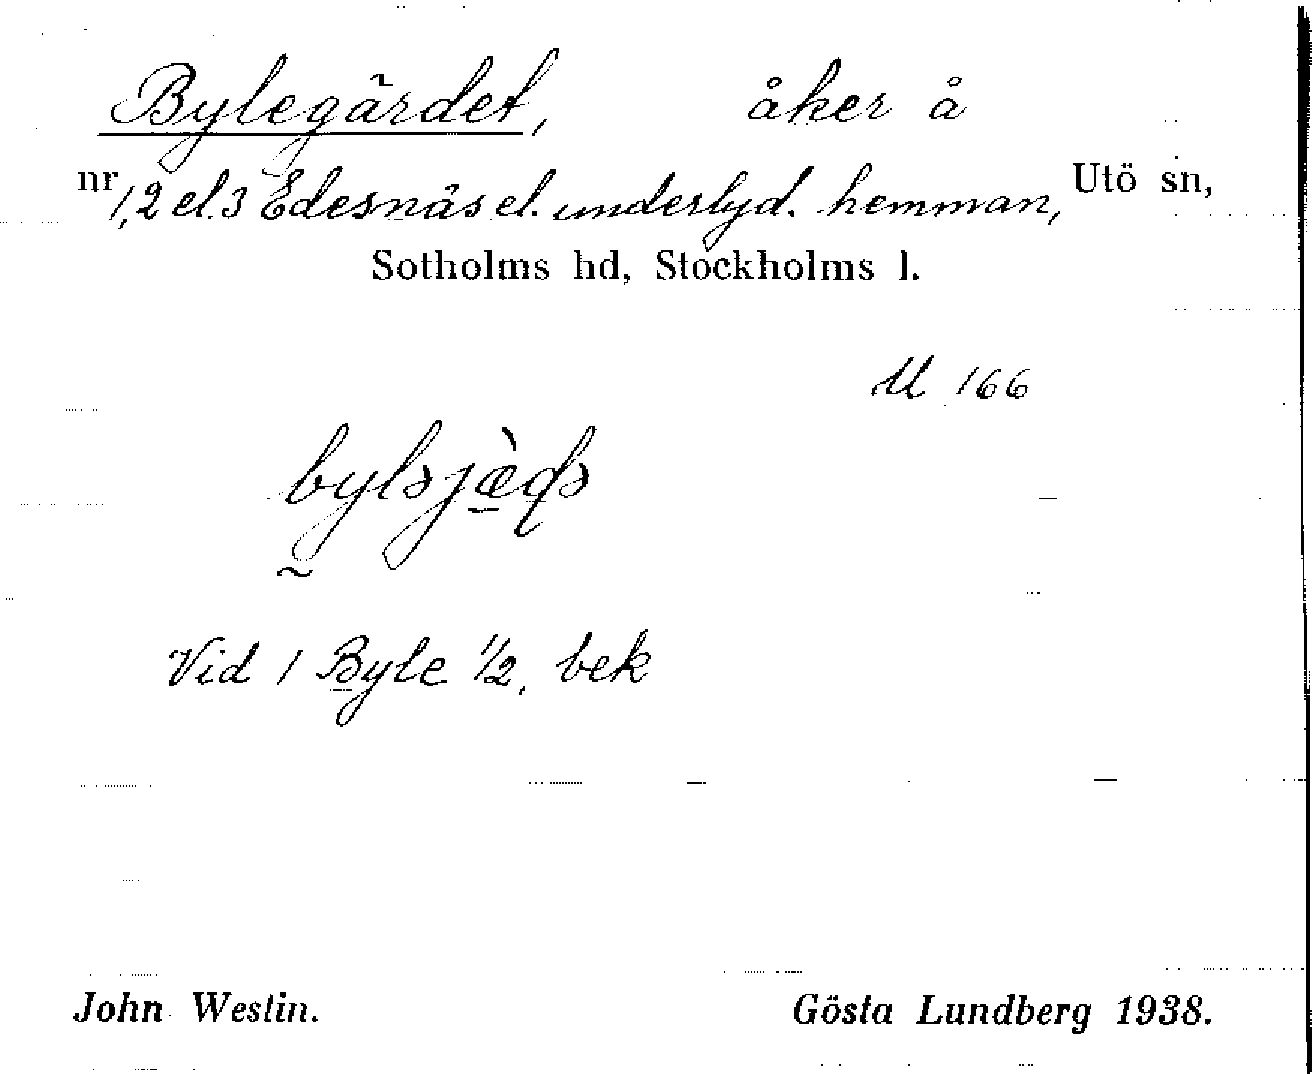 Bylegärdet, åker å
nr 1,2 el.3 Edesnäs el. underlyd. hemman, Utö sn,
Sotholms hd, Stockholms l.
U 166
Vid 1 Byle 1/2, bek
John Westin. Gösta Lundberg 1938.